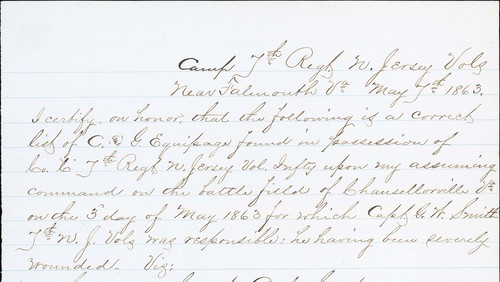 Camp 7th Regt N. Jersey Vols
Near Falmouth Va May 7th 1863.
I certify, on honor, that the following is a correct
list of C. & G. Equipage found in possession of
Co. "C" 7th Regt N. Jersey Vol. Infty upon my assuming
command on the battle field of Chansellorville Va
on the 3d day of May 1863 for which Capt G. W. Smith
7th N. J. Vols was responsible: he having been severly
wounded. Viz: